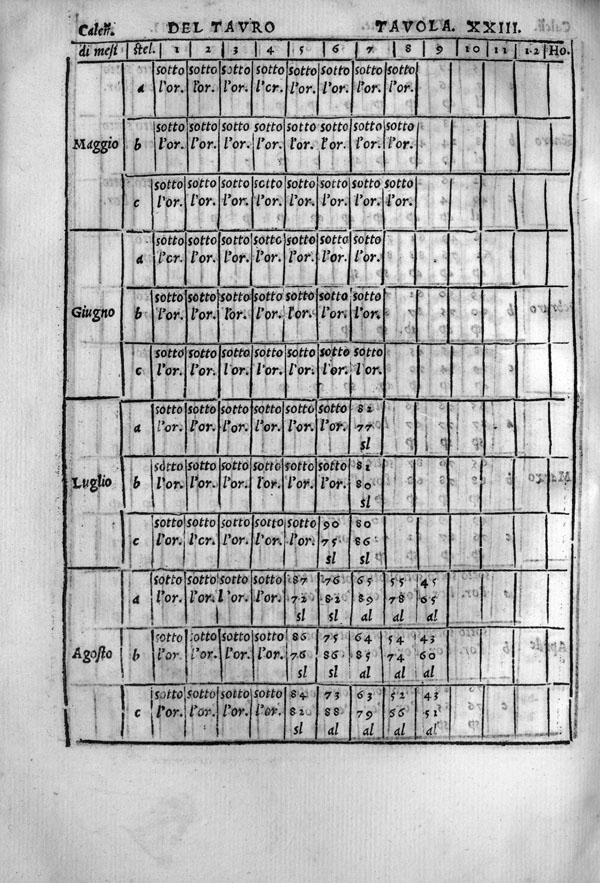 Calen. DEL TAVRO TAVOLA. XXIII.
di mesi stel. 1 2 3 4 5 6 7 8 9 10 11 12 Ho.
sotto sotto sotto sotto sotto sotto sotto sotto
a l'or. l'or. l'or. l'or. l'or. l'or. l'or. l'or.
sotto sotto sotto sotto sotto sotto sotto sotto
Maggio b l'or. l'or. l'or. l'or. l'or. l'or. l'or. l'or.
sotto sotto sotto sotto sotto sotto sotto sotto
c l'or. l'or. l'or. l'or. l'or. l'or. l'or. l'or.
sotto sotto sotto sotto sotto sotto sotto
a l'or. l'or. l'or. l'or. l'or. l'or. l'or.
sotto sotto sotto sotto sotto sotto sotto
Giugno b l'or. l'or. l'or. l'or. l'or. l'or. l'or.
sotto sotto sotto sotto sotto sotto sotto
c l'or. l'or. l'or. l'or. l'or. l'or. l'or.
sotto sotto sotto sotto sotto sotto 82
a l'or. l'or. l'or. l'or. l'or. l'or. 77
sl
sotto sotto sotto sotto sotto sotto 81
Luglio b l'or. l'or. l'or. l'or. l'or. l'or. 80
sl
sotto sotto sotto sotto sotto 90 80
c l'or. l'or. l'or. l'or. l'or. 75 86
sl sl
sotto sotto sotto sotto 87 76 65 55 45
a l'or. l'or. l'or. l'or. 72 82 89 78 65
sl sl al al al
sotto sotto sotto sotto 86 75 64 54 43
Agosto b l'or. l'or. l'or. l'or. 76 86 85 74 60
sl sl al al al
sotto sotto sotto sotto 84 73 63 52 43
c l'or. l'or. l'or. l'or. 82 88 79 66 51
sl al al al al